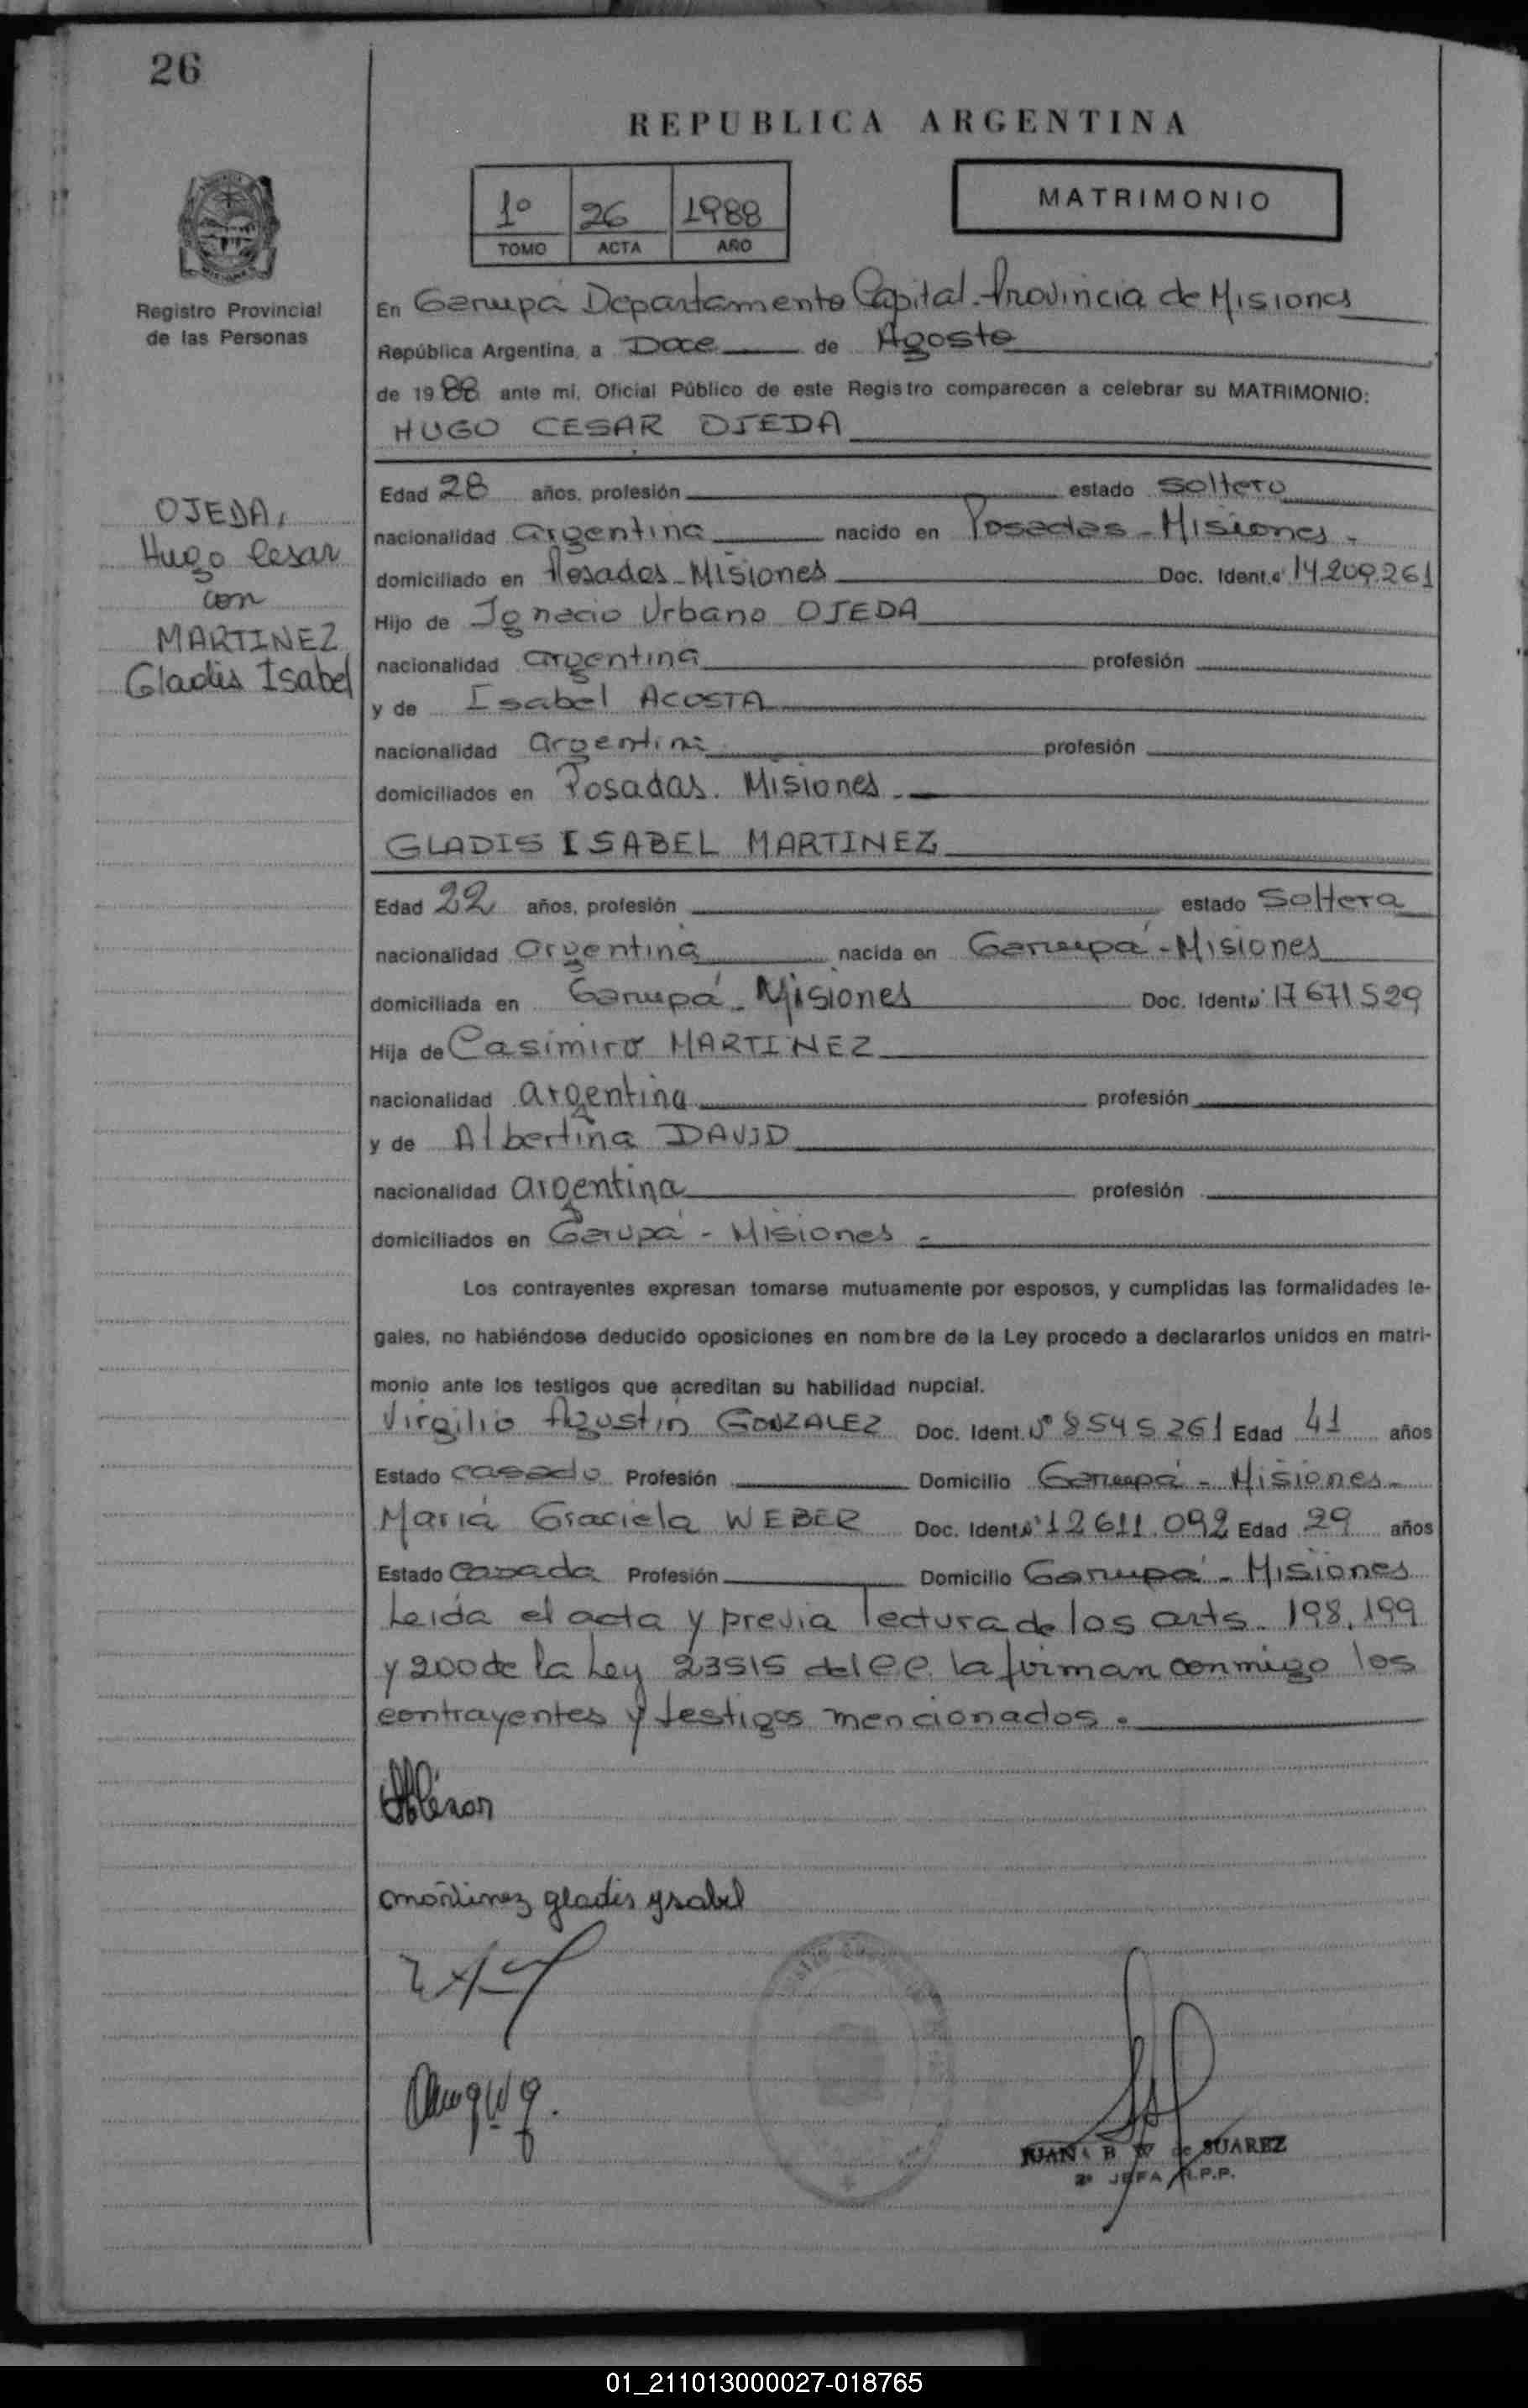 26
REPUBLICA ARGENTINA
1º 26 1988
TOMO ACTA AÑO
MATRIMONIO
Registro Provincial
de las Personas
En Garupá Departamento Capital. Provincia de Misiones
República Argentina, a Doce de Agosto
de 1988 ante mi, Oficial Público de este Registro comparecen a celebrar su MATRIMONIO:
HUGO CESAR OJEDA
OJEDA,
Hugo Cesar
con
MARTINEZ
Gladis Isabel
Edad 28 años, profesión estado Soltero
nacionalidad argentina nacido en Posadas - Misiones.
domiciliado en Posadas - Misiones Doc. Ident. 14.209.261
Hijo de Ignacio Urbano OJEDA
nacionalidad argentina profesión
y de Isabel ACOSTA
nacionalidad argentina profesión
domiciliados en Posadas. Misiones.
GLADIS ISABEL MARTINEZ
Edad 22 años, profesión estado Soltera
nacionalidad argentina nacida en Garupá - Misiones
domiciliada en Garupá - Misiones Doc. Ident. 17671529
Hija de Casimiro MARTINEZ
nacionalidad argentina profesión
y de Albertina DAVID
nacionalidad argentina profesión
domiciliados en Garupá - Misiones -
Los contrayentes expresan tomarse mutuamente por esposos, y cumplidas las formalidades le-
gales, no habiéndose deducido oposiciones en nombre de la Ley procedo a declararlos unidos en matri-
monio ante los testigos que acreditan su habilidad nupcial.
Virgilio Agustín GONZALEZ Doc. Ident. Nº 8545261 Edad 41 años
Estado casado Profesión Domicilio Garupá - Misiones -
María Graciela WEBER Doc. Ident. Nº 12611.092 Edad 29 años
Estado Casada Profesión Domicilio Garupá - Misiones
Leída el acta y previa lectura de los arts. 198, 199
y 200 de la Ley 23515 del C.C. la firman conmigo los
contrayentes y testigos mencionados.
martinez gladis ysabel
JUANA B W de SUAREZ
2º JEFA R.P.P.
01_211013000027-018765